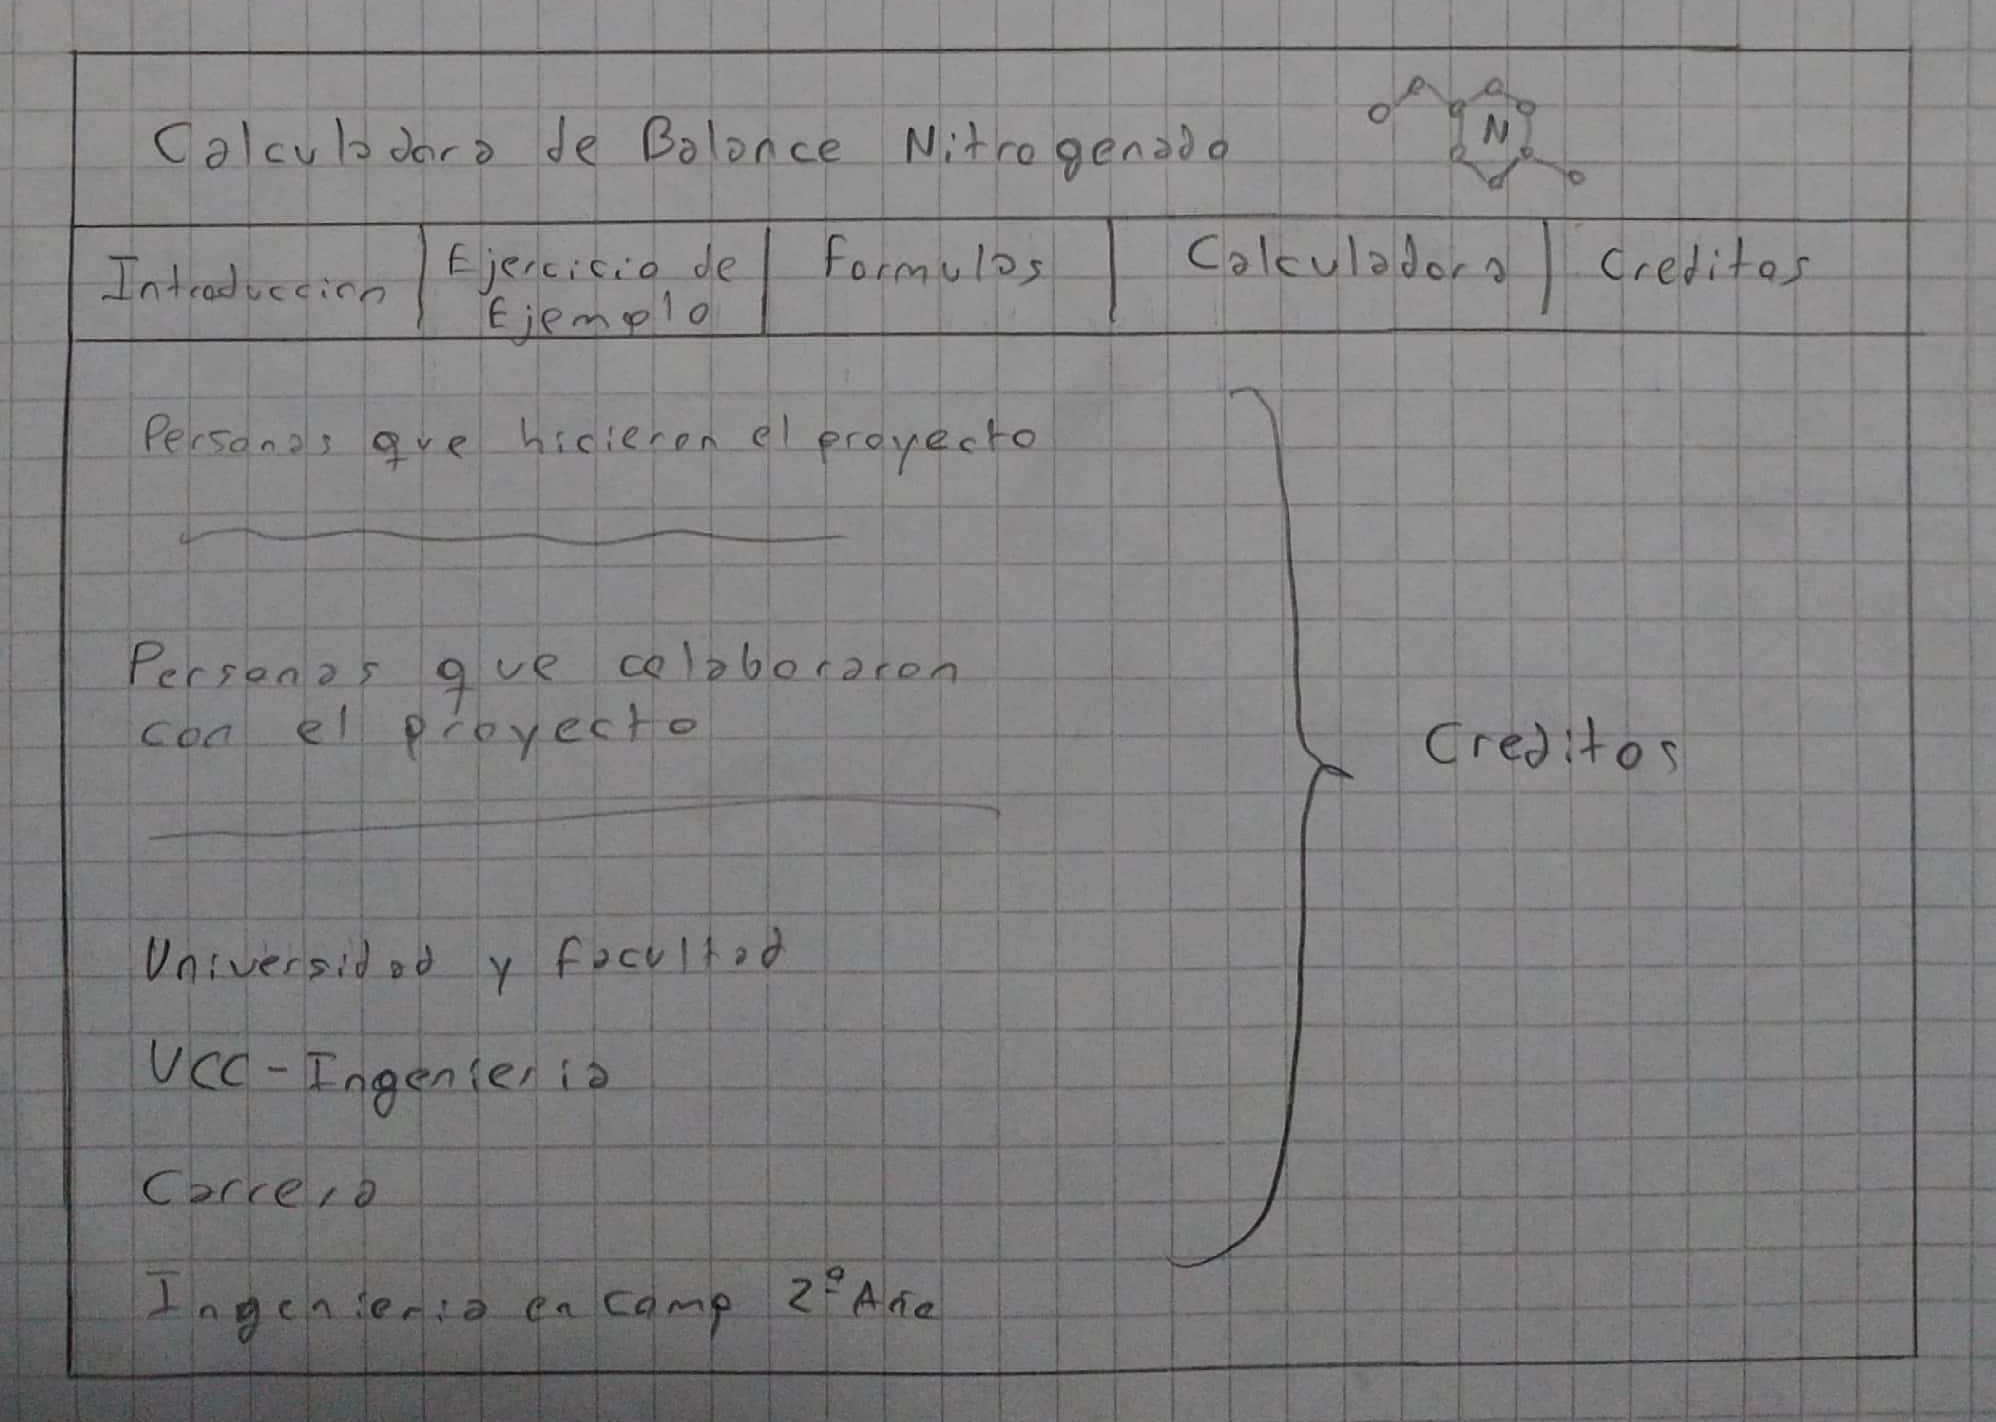 Calculadora de Balance Nitrogenado
N
Introduccion
Ejercicio de
Ejemplo
Formulas
Calculadora
Creditos
Personas que hicieron el proyecto
Personas que colaboraron
con el proyecto
Creditos
Universidad y facultad
UCC-Ingenieria
Carrera
Ingenieria en Comp 2º Año